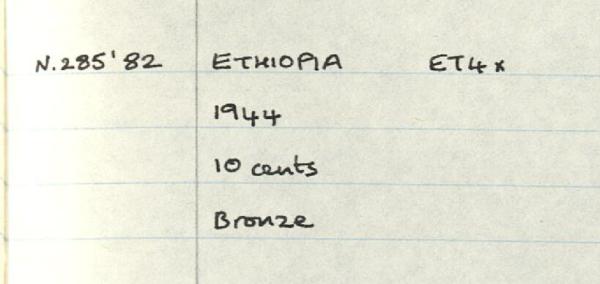 N.285'82 ETHIOPIA ET4x
1944
10 cents
Bronze